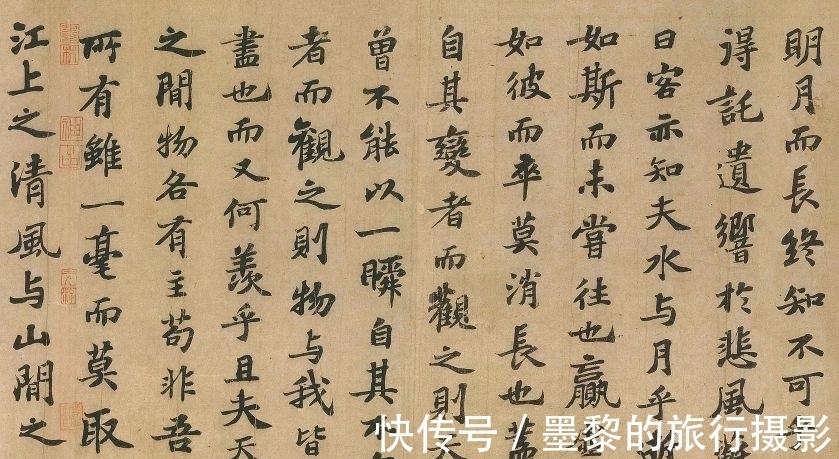 明月而長終知不可
得託遺響於悲風
曰客亦知夫水与月乎
如斯而未嘗往也贏
如彼而卒莫消長也蓋
自其變者而觀之則
曾不能以一瞬自其不
者而觀之則物与我皆
盡也而又何羨乎且夫天
之間物各有主苟非吾
所有雖一毫而莫取
江上之清風与山間之
快传号 / 墨黎的旅行摄影